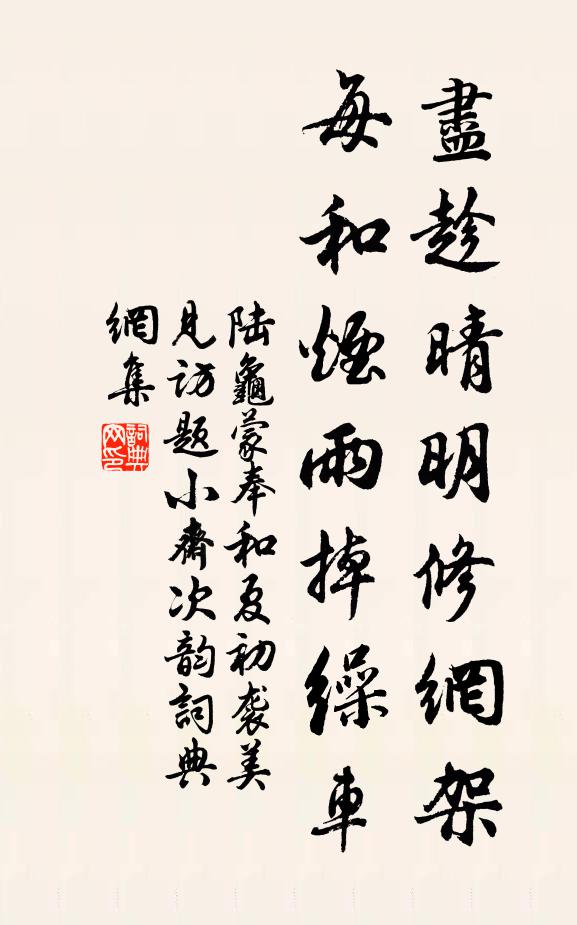 盡趁晴明修網架
每和煙雨掉繰車
陸龜蒙奉和夏初袭美
見訪題小齋次韵詞典
網集
詞典
网